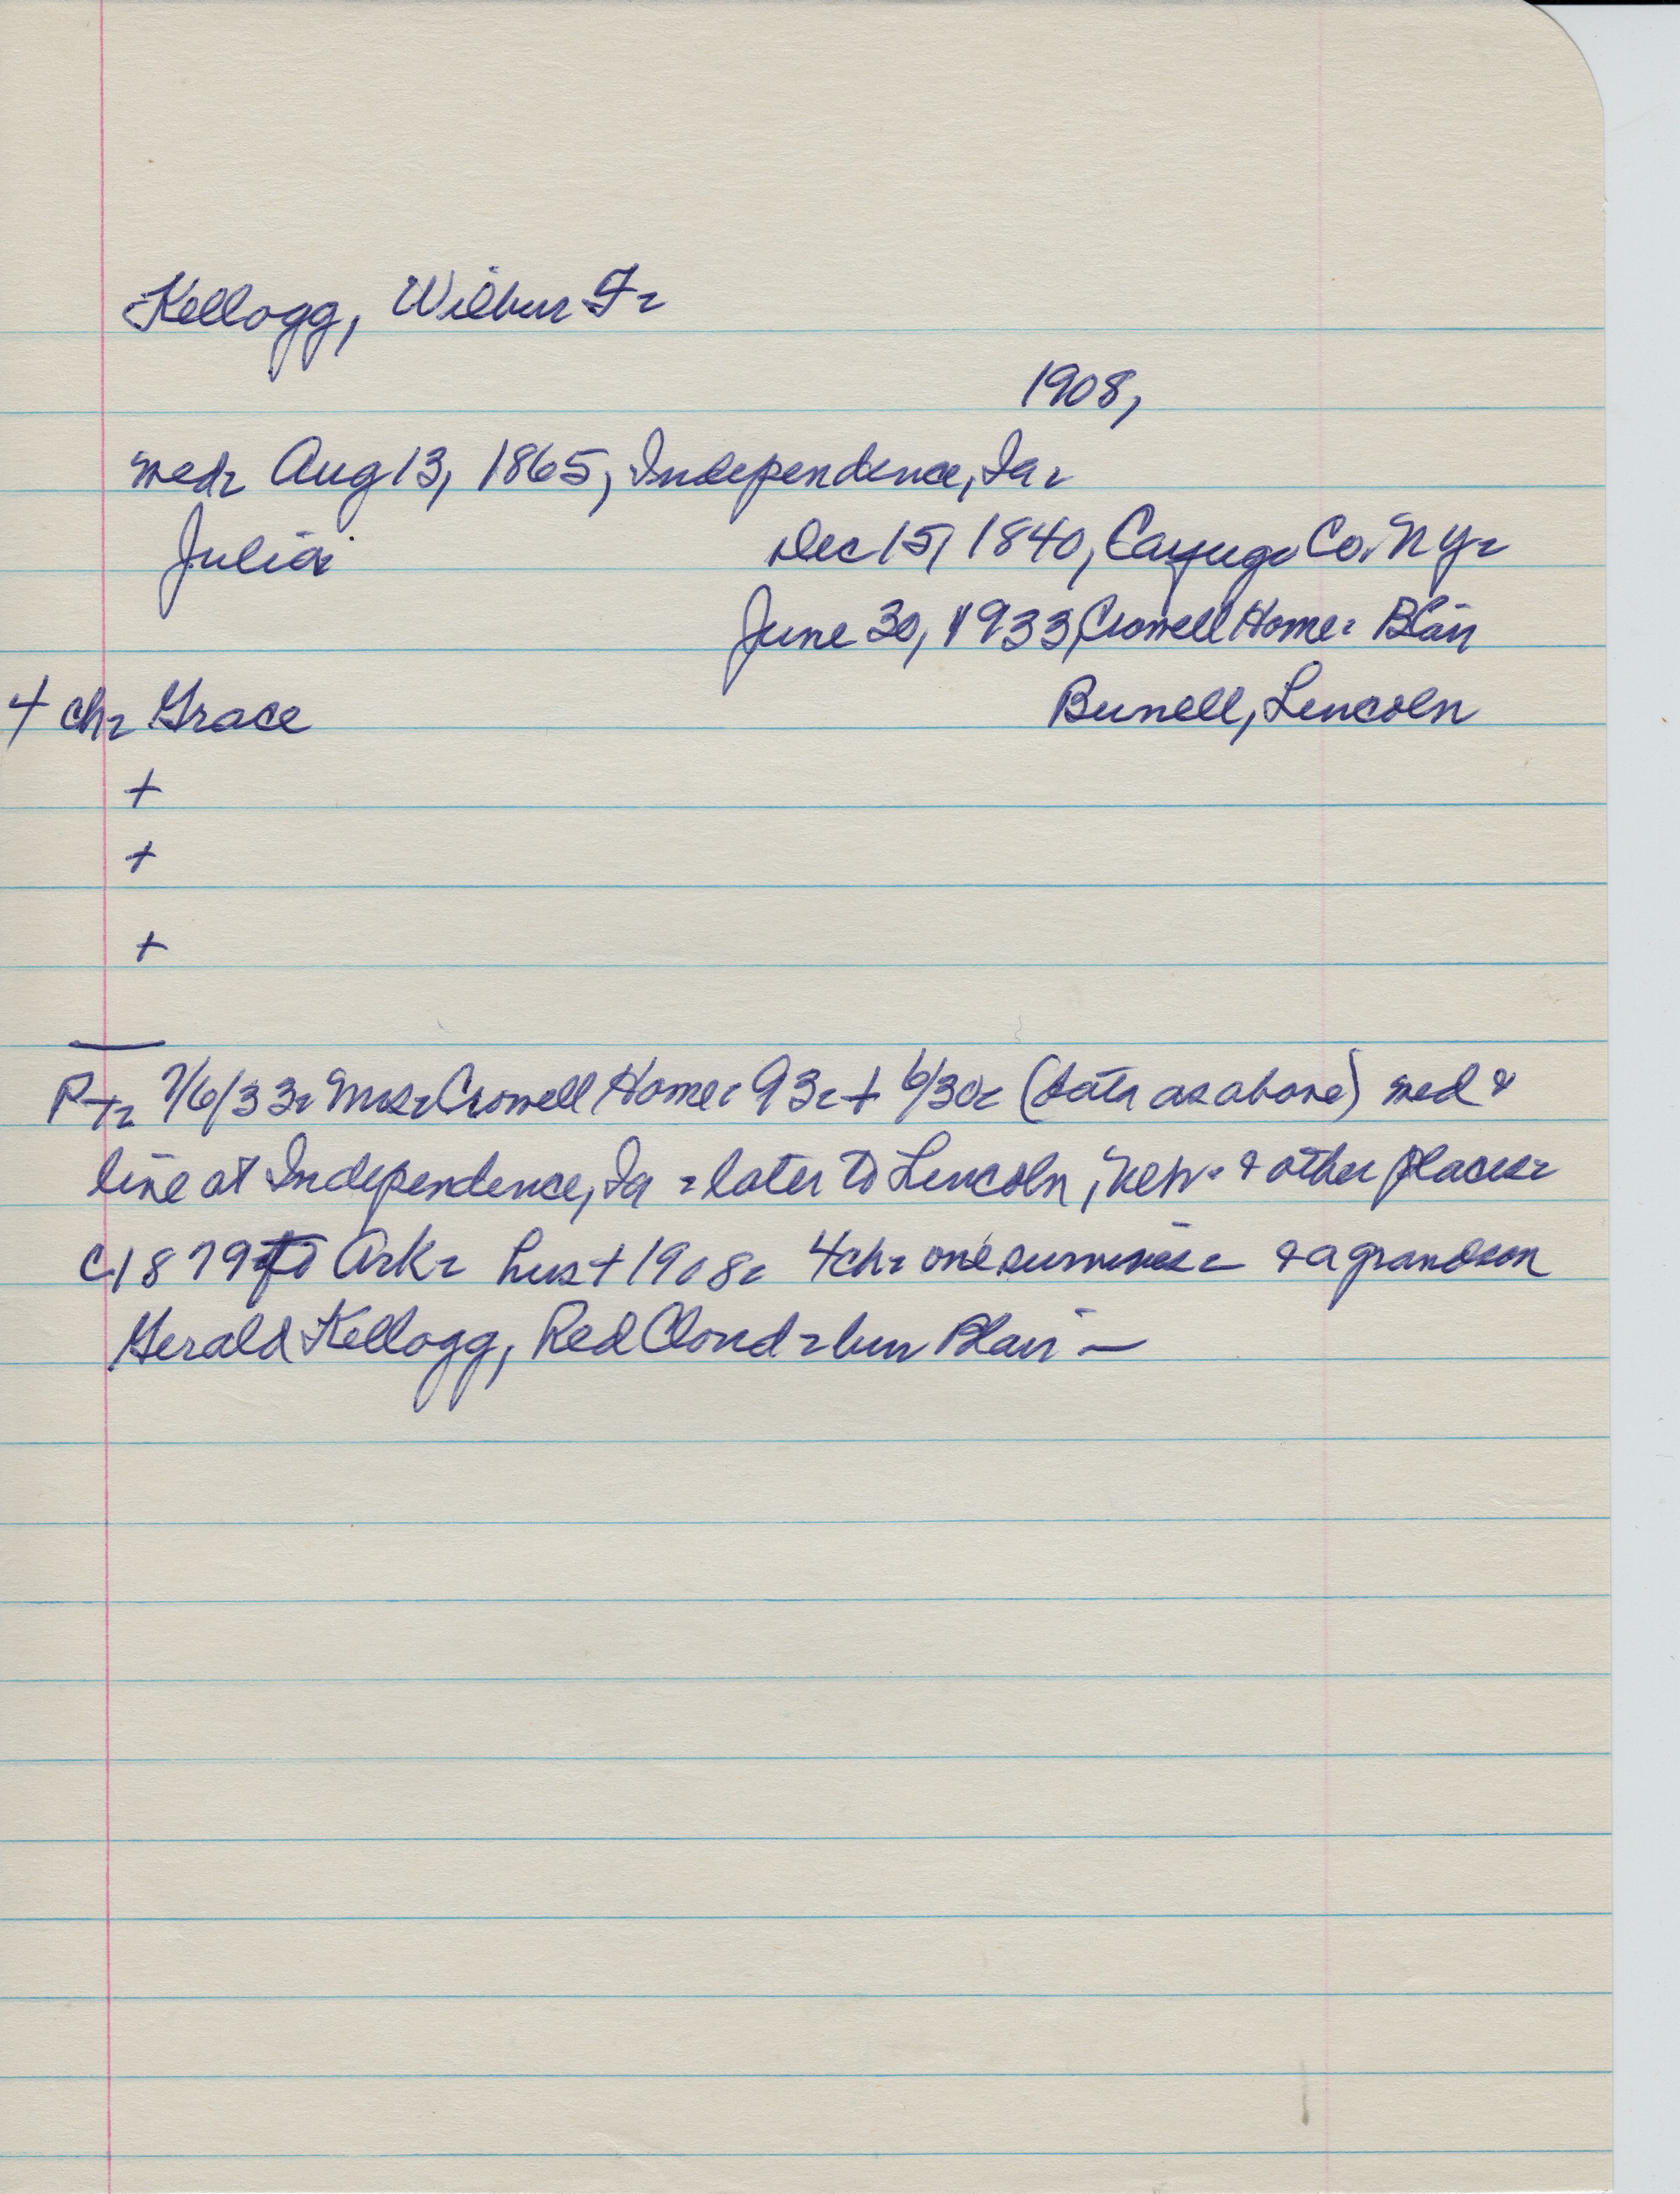 Kellogg, Wilbur F.
1908,
med. Aug 13, 1865, Independence, Ia.
Julia Dec 15, 1840, Cayuga Co. N Y.
June 30, 1933, Crowell Home. Blair
4 ch. Grace Bunell, Lincoln
+
+
+
P.T. 7/6/33. Mrs. Crowell Home. 93. + 6/30. (data as above) med &
live at Independence, Ia. later to Lincoln, Neb. & other places.
c1879 to Ark. hus + 1908. 4 ch. one survives. & a grandson
Gerald Kellogg, Red Cloud. bur Blair —